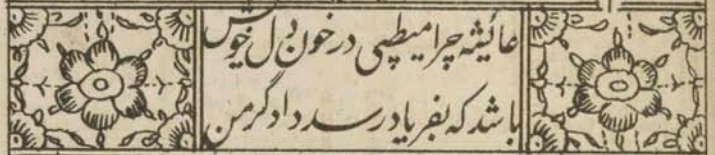 عائیشه چرا میطپی در خون دل خویش
باشد که بفریاد رسد دادگر من